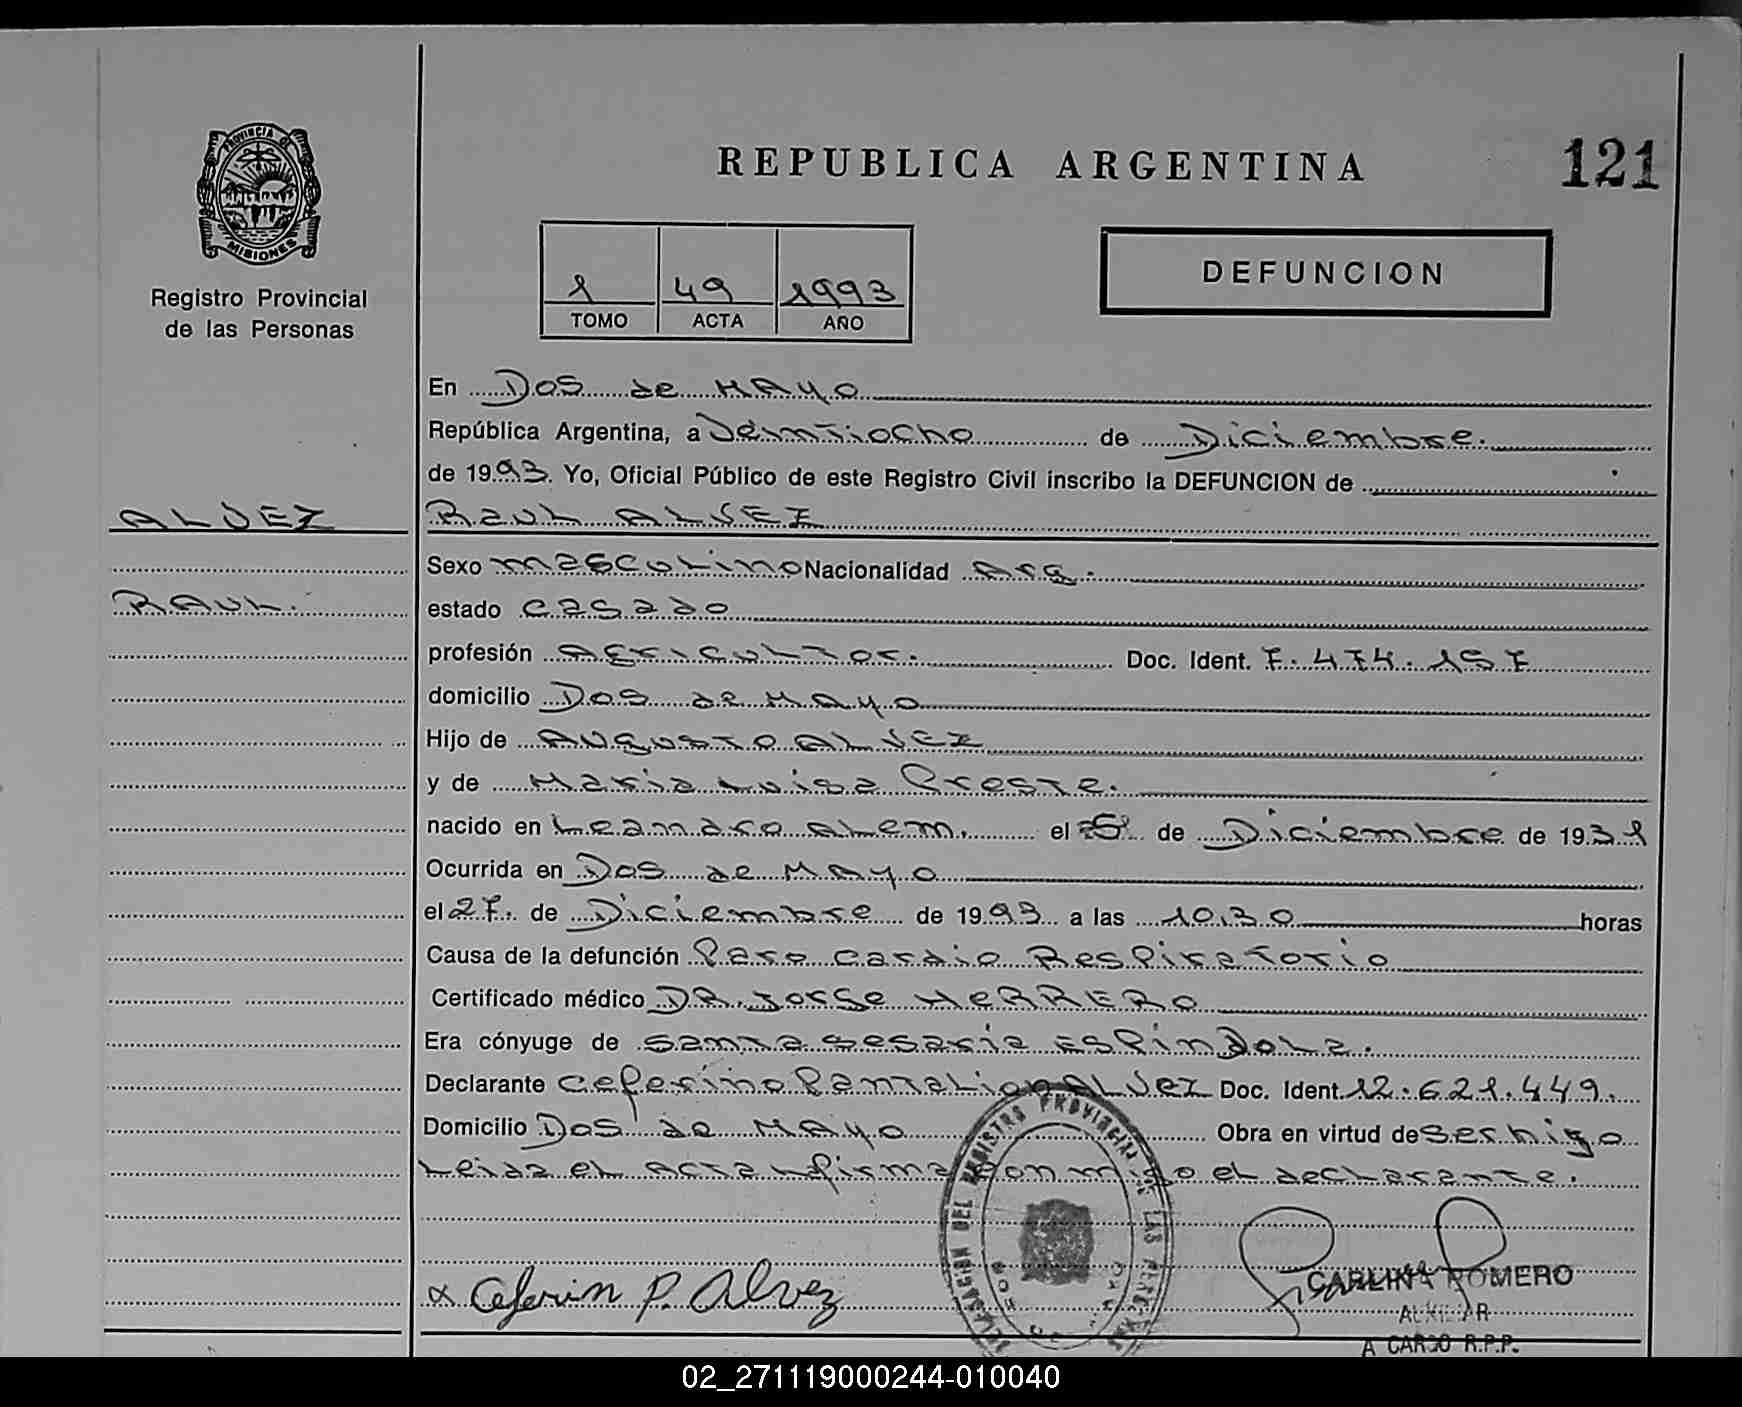 PROVINCIA DE
MISIONES
Registro Provincial
de las Personas
REPUBLICA ARGENTINA
121
1 49 1993
TOMO ACTA AÑO
DEFUNCION
En Dos de MAYO
República Argentina, a Veintiocho de Diciembre.
de 1993. Yo, Oficial Público de este Registro Civil inscribo la DEFUNCION de
ALVEZ
RAUL ALVEZ
Sexo masculino Nacionalidad Arg.
RAUL.
estado casado
profesión Agricultor. Doc. Ident. 7.474.157
domicilio Dos de MAYO
Hijo de AUGUSTO ALVEZ
y de Maria Luisa Preste.
nacido en Leandro Alem. el de Diciembre de 1931
Ocurrida en Dos de MAYO
el 27. de Diciembre de 1993 a las 10.30 horas
Causa de la defunción Paro cardio Respiratorio
Certificado médico DR. Jorge HERRERO
Era cónyuge de Santa Sesaria Espindola.
Declarante Ceferino Pantalion ALVEZ Doc. Ident. 12.621.449.
Domicilio Dos de MAYO Obra en virtud de ser hijo
Leida el Acta firma conmigo el declarante.
DELEGACION DEL REGISTRO PROVINCIAL DE LAS PERSONAS
x Ceferin P. Alvez
CARLINA ROMERO
AUXILIAR
A CARGO R.P.P.
02_271119000244-010040